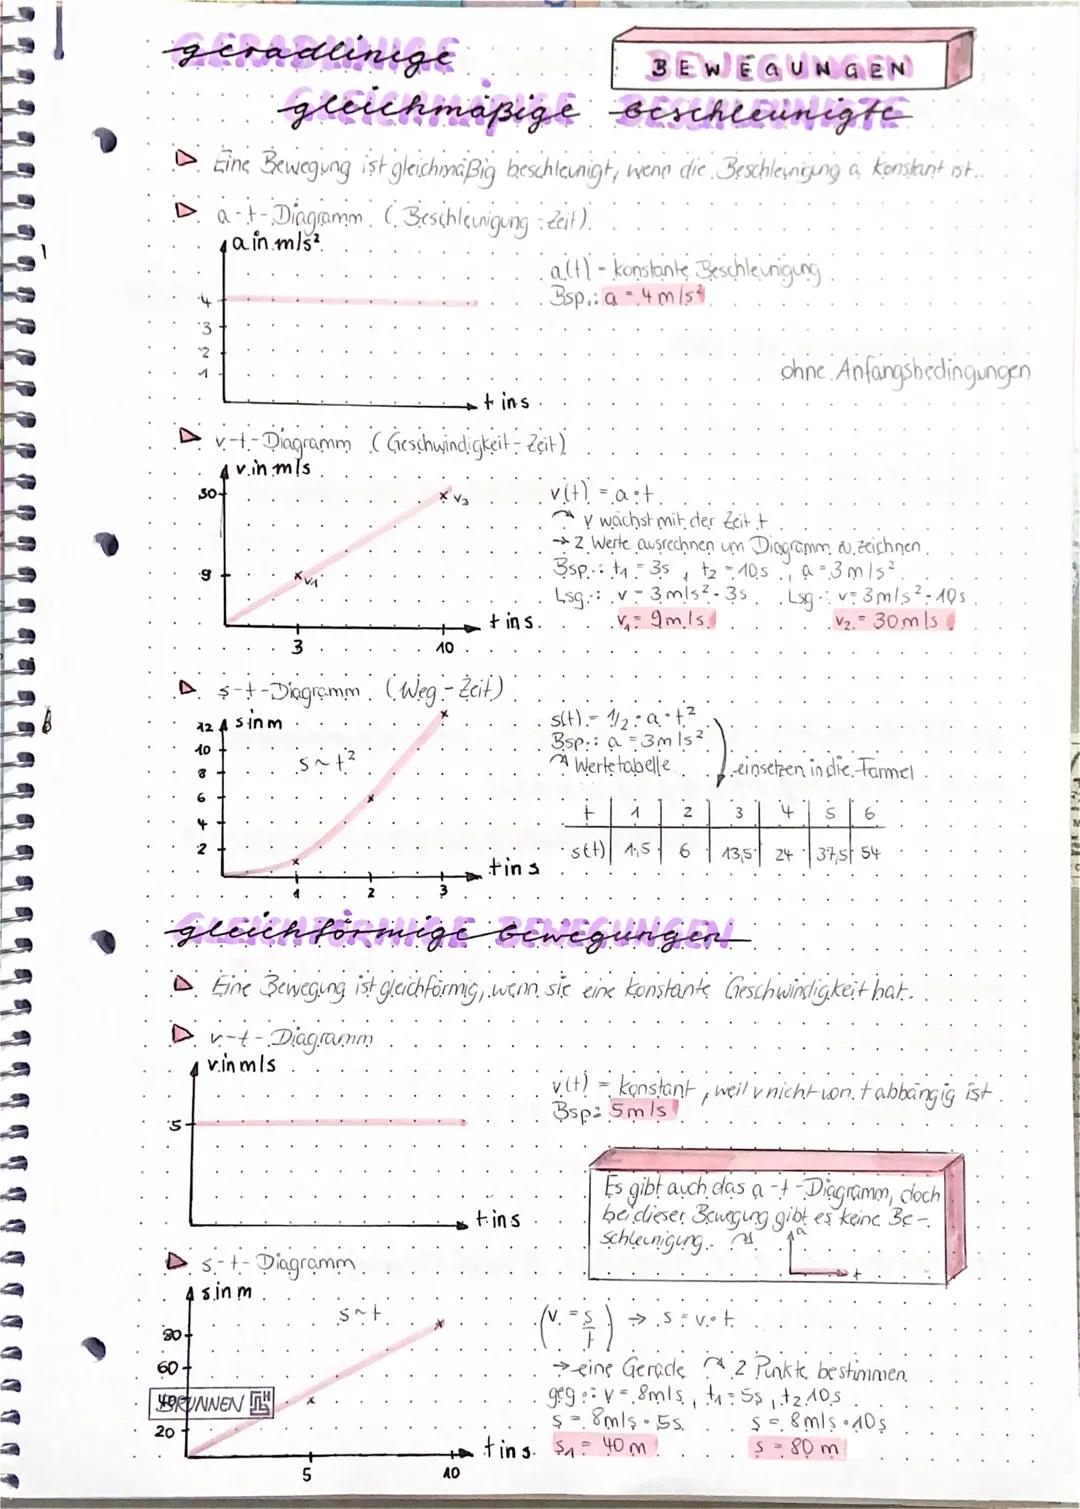 geradlinige
GERADLINIGE
BEWEGUNGEN
gleichmäßige beschleunigte
GLEICHMÄßIGE BESCHLEUNIGTE
Eine Bewegung ist gleichmäßig beschleunigt, wenn die Beschleunigung a konstant ist.
a-t-Diagramm (Beschleunigung-Zeit)
a in m/s²
4
3
2
1
t in s
a(t) - konstante Beschleunigung
Bsp.: a = 4 m/s²
ohne Anfangsbedingungen
v-t-Diagramm (Geschwindigkeit-Zeit)
v in m/s
30
9
v₁
v₂
3
10
t in s
v(t) = a·t
v wächst mit der Zeit t
→ 2 Werte ausrechnen um Diagramm zu zeichnen
Bsp.: t₁ = 3s , t₂ = 10s , a = 3m/s²
Lsg.: v = 3m/s²·3s Lsg.: v = 3m/s²·10s
v₁ = 9m/s v₂ = 30m/s
s-t-Diagramm (Weg-Zeit)
s in m
12
10
8
6
4
2
s~t²
1
2
3
t in s
s(t) = 1/2·a·t²
Bsp.: a = 3m/s²
Wertetabelle einsetzen in die Formel
t 1 2 3 4 5 6
s(t) 1,5 6 13,5 24 37,5 54
gleichförmige bewegungen
GLEICHFÖRMIGE BEWEGUNGEN
Eine Bewegung ist gleichförmig, wenn sie eine konstante Geschwindigkeit hat.
v-t-Diagramm
v in m/s
5
t in s
v(t) = konstant, weil v nicht von t abhängig ist
Bsp: 5m/s
Es gibt auch das a-t-Diagramm, doch
bei dieser Bewegung gibt es keine Be-
schleunigung.
a
t
s-t-Diagramm
s in m
80
60
40
20
s~t
5
10
t in s
(v = s/t) → s = v·t
→ eine Gerade 2 Punkte bestimmen
geg.: v = 8m/s, t₁ = 5s, t₂ 10s
s = 8m/s·5s s = 8m/s·10s
s₁ = 40 m s = 80 m
BRUNNEN